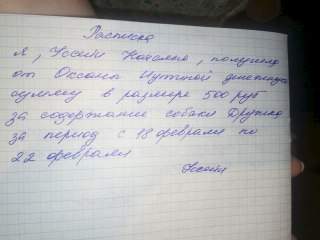 Расписка
Я, Уссети Наталия, получила
от Оксаны Нутной денежную
сумму в размере 500 руб
за содержание собаки Дружка
за период с 18 февраля по
22 февраля